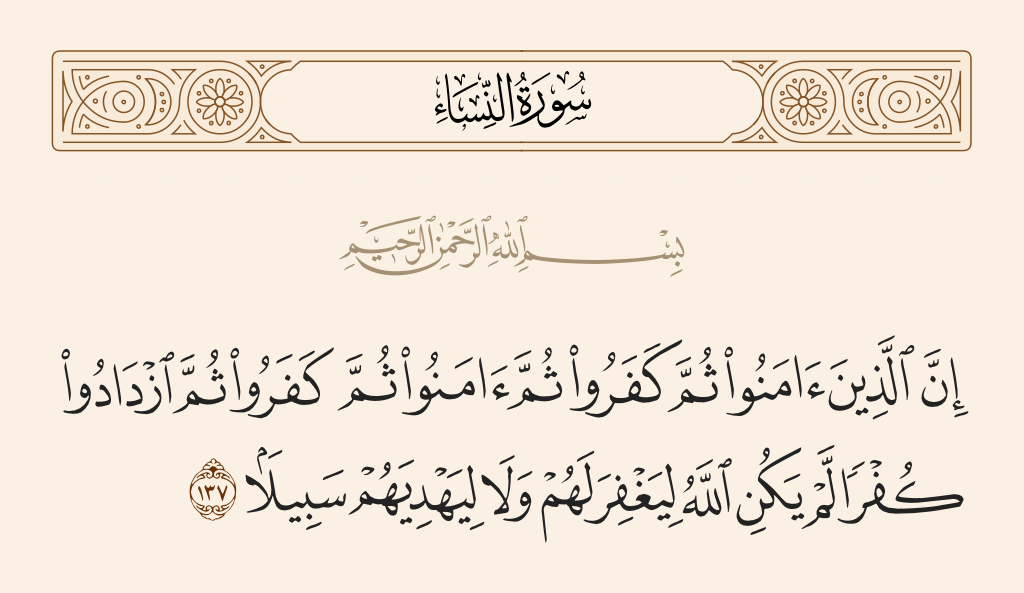 سُورَةُ النِّسَاءِ
بِسْمِ ٱللَّهِ ٱلرَّحْمَٰنِ ٱلرَّحِيمِ
إِنَّ ٱلَّذِينَ ءَامَنُوا۟ ثُمَّ كَفَرُوا۟ ثُمَّ ءَامَنُوا۟ ثُمَّ كَفَرُوا۟ ثُمَّ ٱزْدَادُوا۟
كُفْرًا لَّمْ يَكُنِ ٱللَّهُ لِيَغْفِرَ لَهُمْ وَلَا لِيَهْدِيَهُمْ سَبِيلًۢا ١٣٧